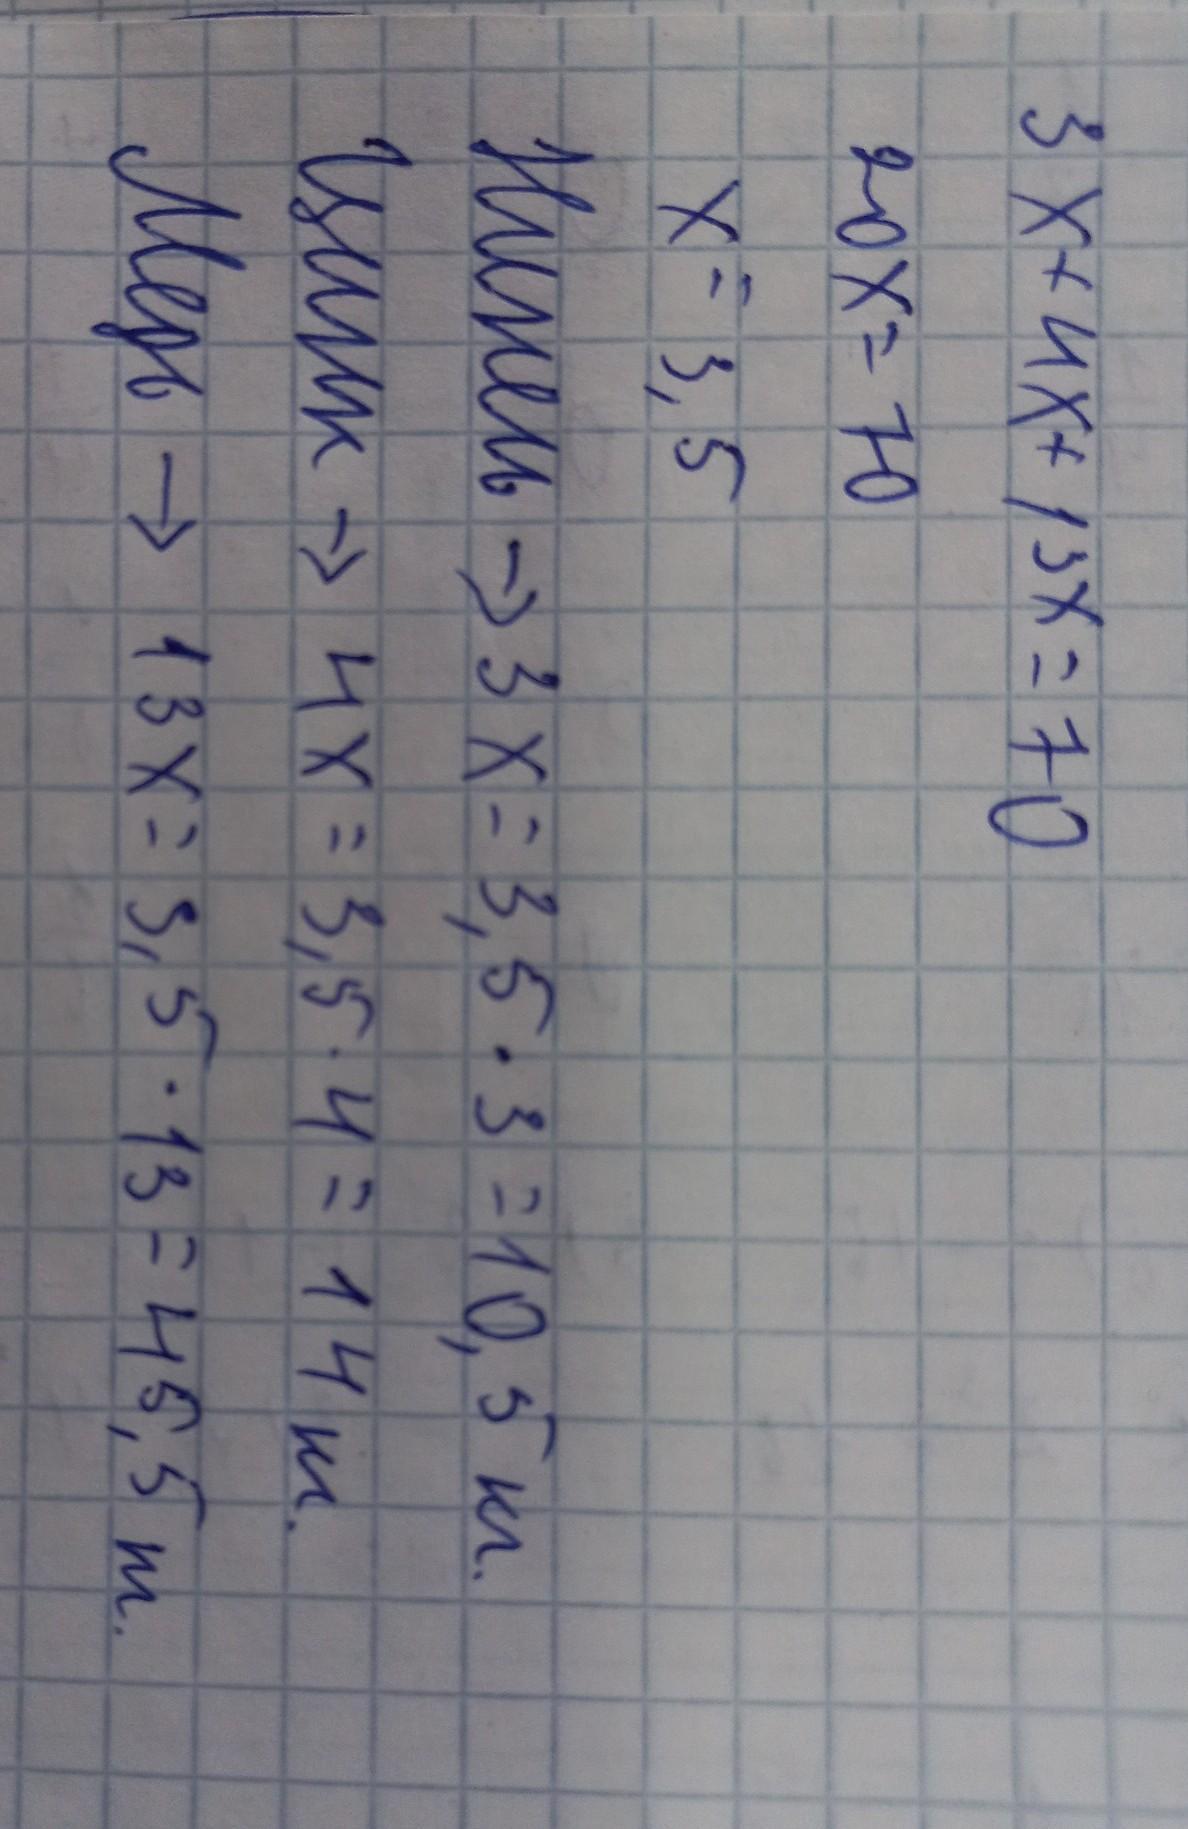 3x+4x+13x=70
20x=70
x=3,5
Никель → 3x=3,5·3=10,5 кг.
Цинк → 4x=3,5·4=14 кг.
Медь → 13x=3,5·13=45,5 кг.